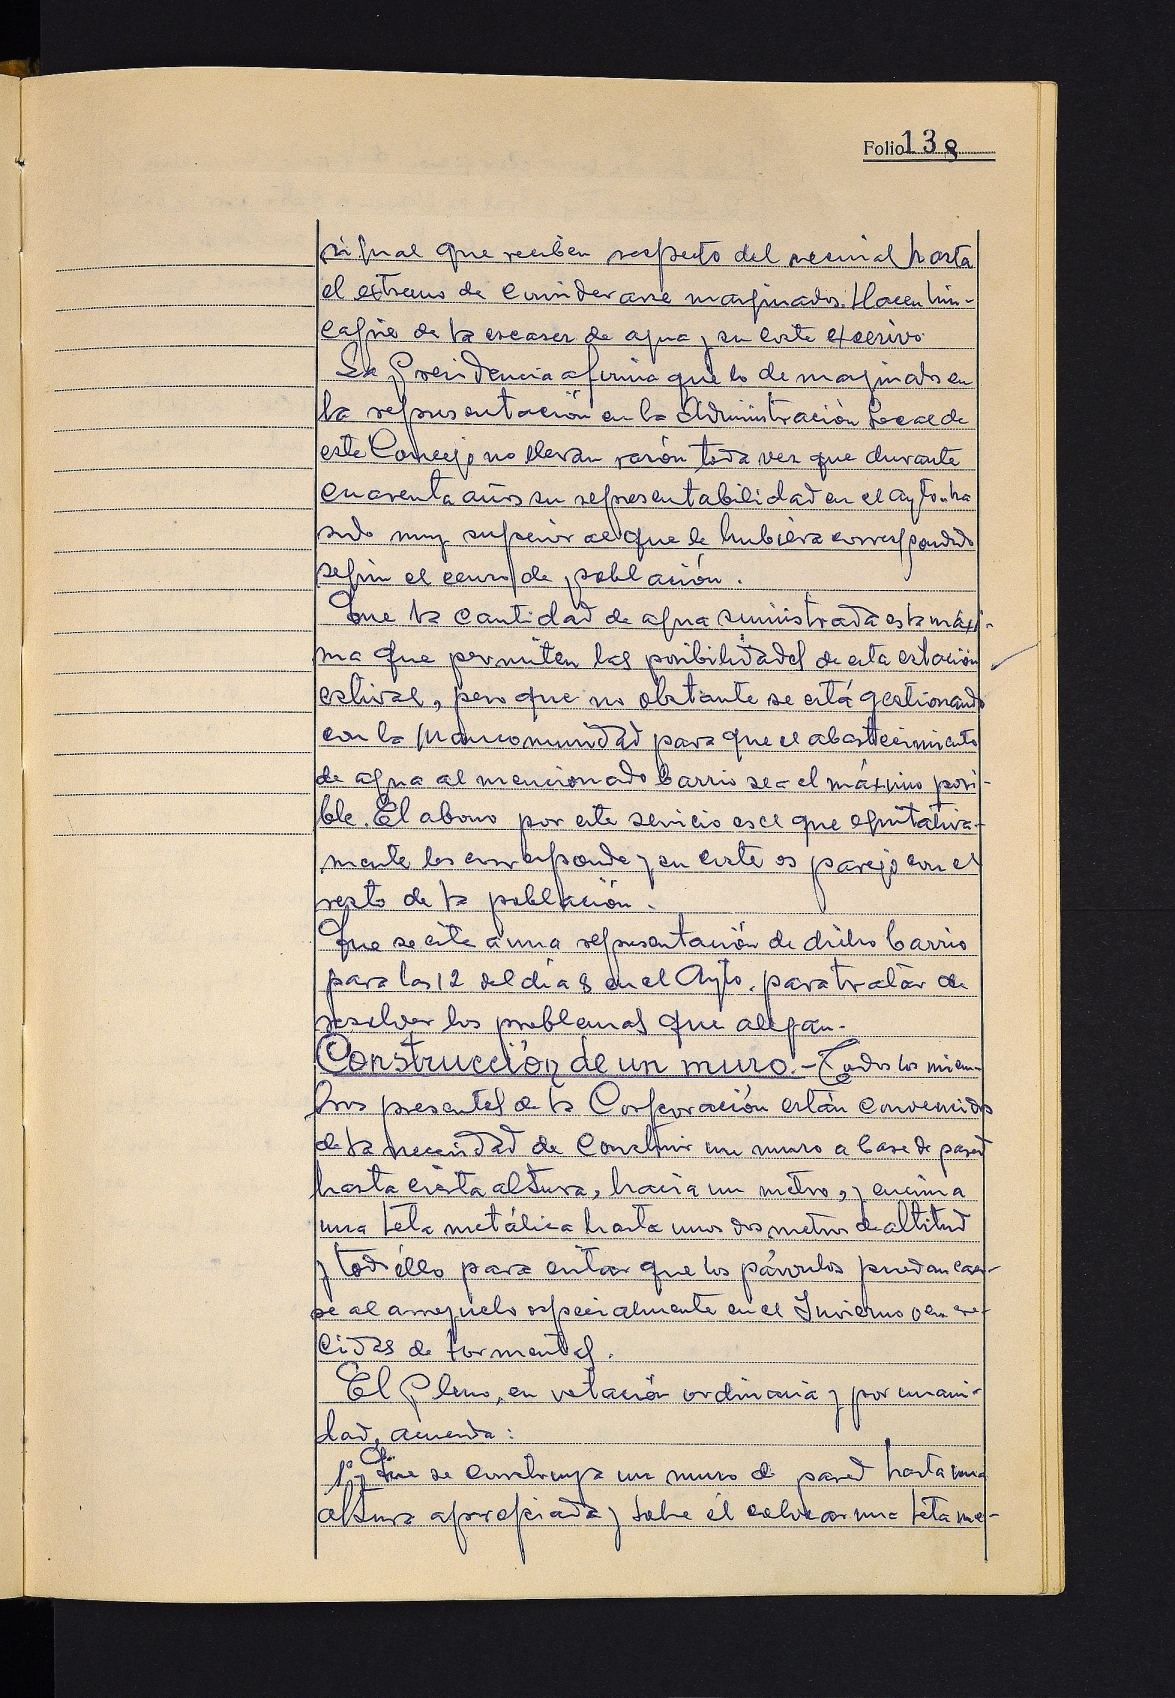 Folio 138
sigual que reciben respecto del vecinal hasta
el extremo de considerarse marginados. Hacen hin-
capie de la escasez de agua y su coste excesivo
La Presidencia afirma que lo de marginados en
la representación en la Administración Local de
este Concejo no llevan razón toda vez que durante
cuarenta años su representabilidad en el Ayto. ha
sido muy superior al que le hubiera correspondido
según el censo de población.
Que la cantidad de agua suministrada es la máxi-
ma que permiten las posibilidades de esta estación
estival, pero que no obstante se está gestionando
con la Mancomunidad para que el abastecimiento
de agua al mencionado barrio sea el máximo posi-
ble. El abono por este servicio es el que equitativa-
mente les corresponde y su coste es parejo con el
resto de la población.
Que se cite a una representación de dicho barrio
para las 12 del día 8 en el Ayto. para tratar de
resolver los problemas que alegan.-
Construcción de un muro.- Todos los miem-
bros presentes de la Corporación están convencidos
de la necesidad de construir un muro a base de pared
hasta cierta altura, hacia un metro, y encima
una tela metálica hasta unos dos metros de altitud
y todo éllo para evitar que los párvulos puedan caer-
se al arroyuelo especialmente en el Invierno o en cre-
cidas de tormentas.
El Pleno, en votación ordinaria y por unani-
dad, acuerda:
1º) Que se construya un muro de pared hasta una
altura apropiada y sobre él colocar una tela me-